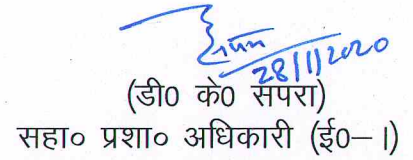 28/1/2020
(डी0 के0 सपरा)
सहा० प्रशा० अधिकारी (ई0–।)